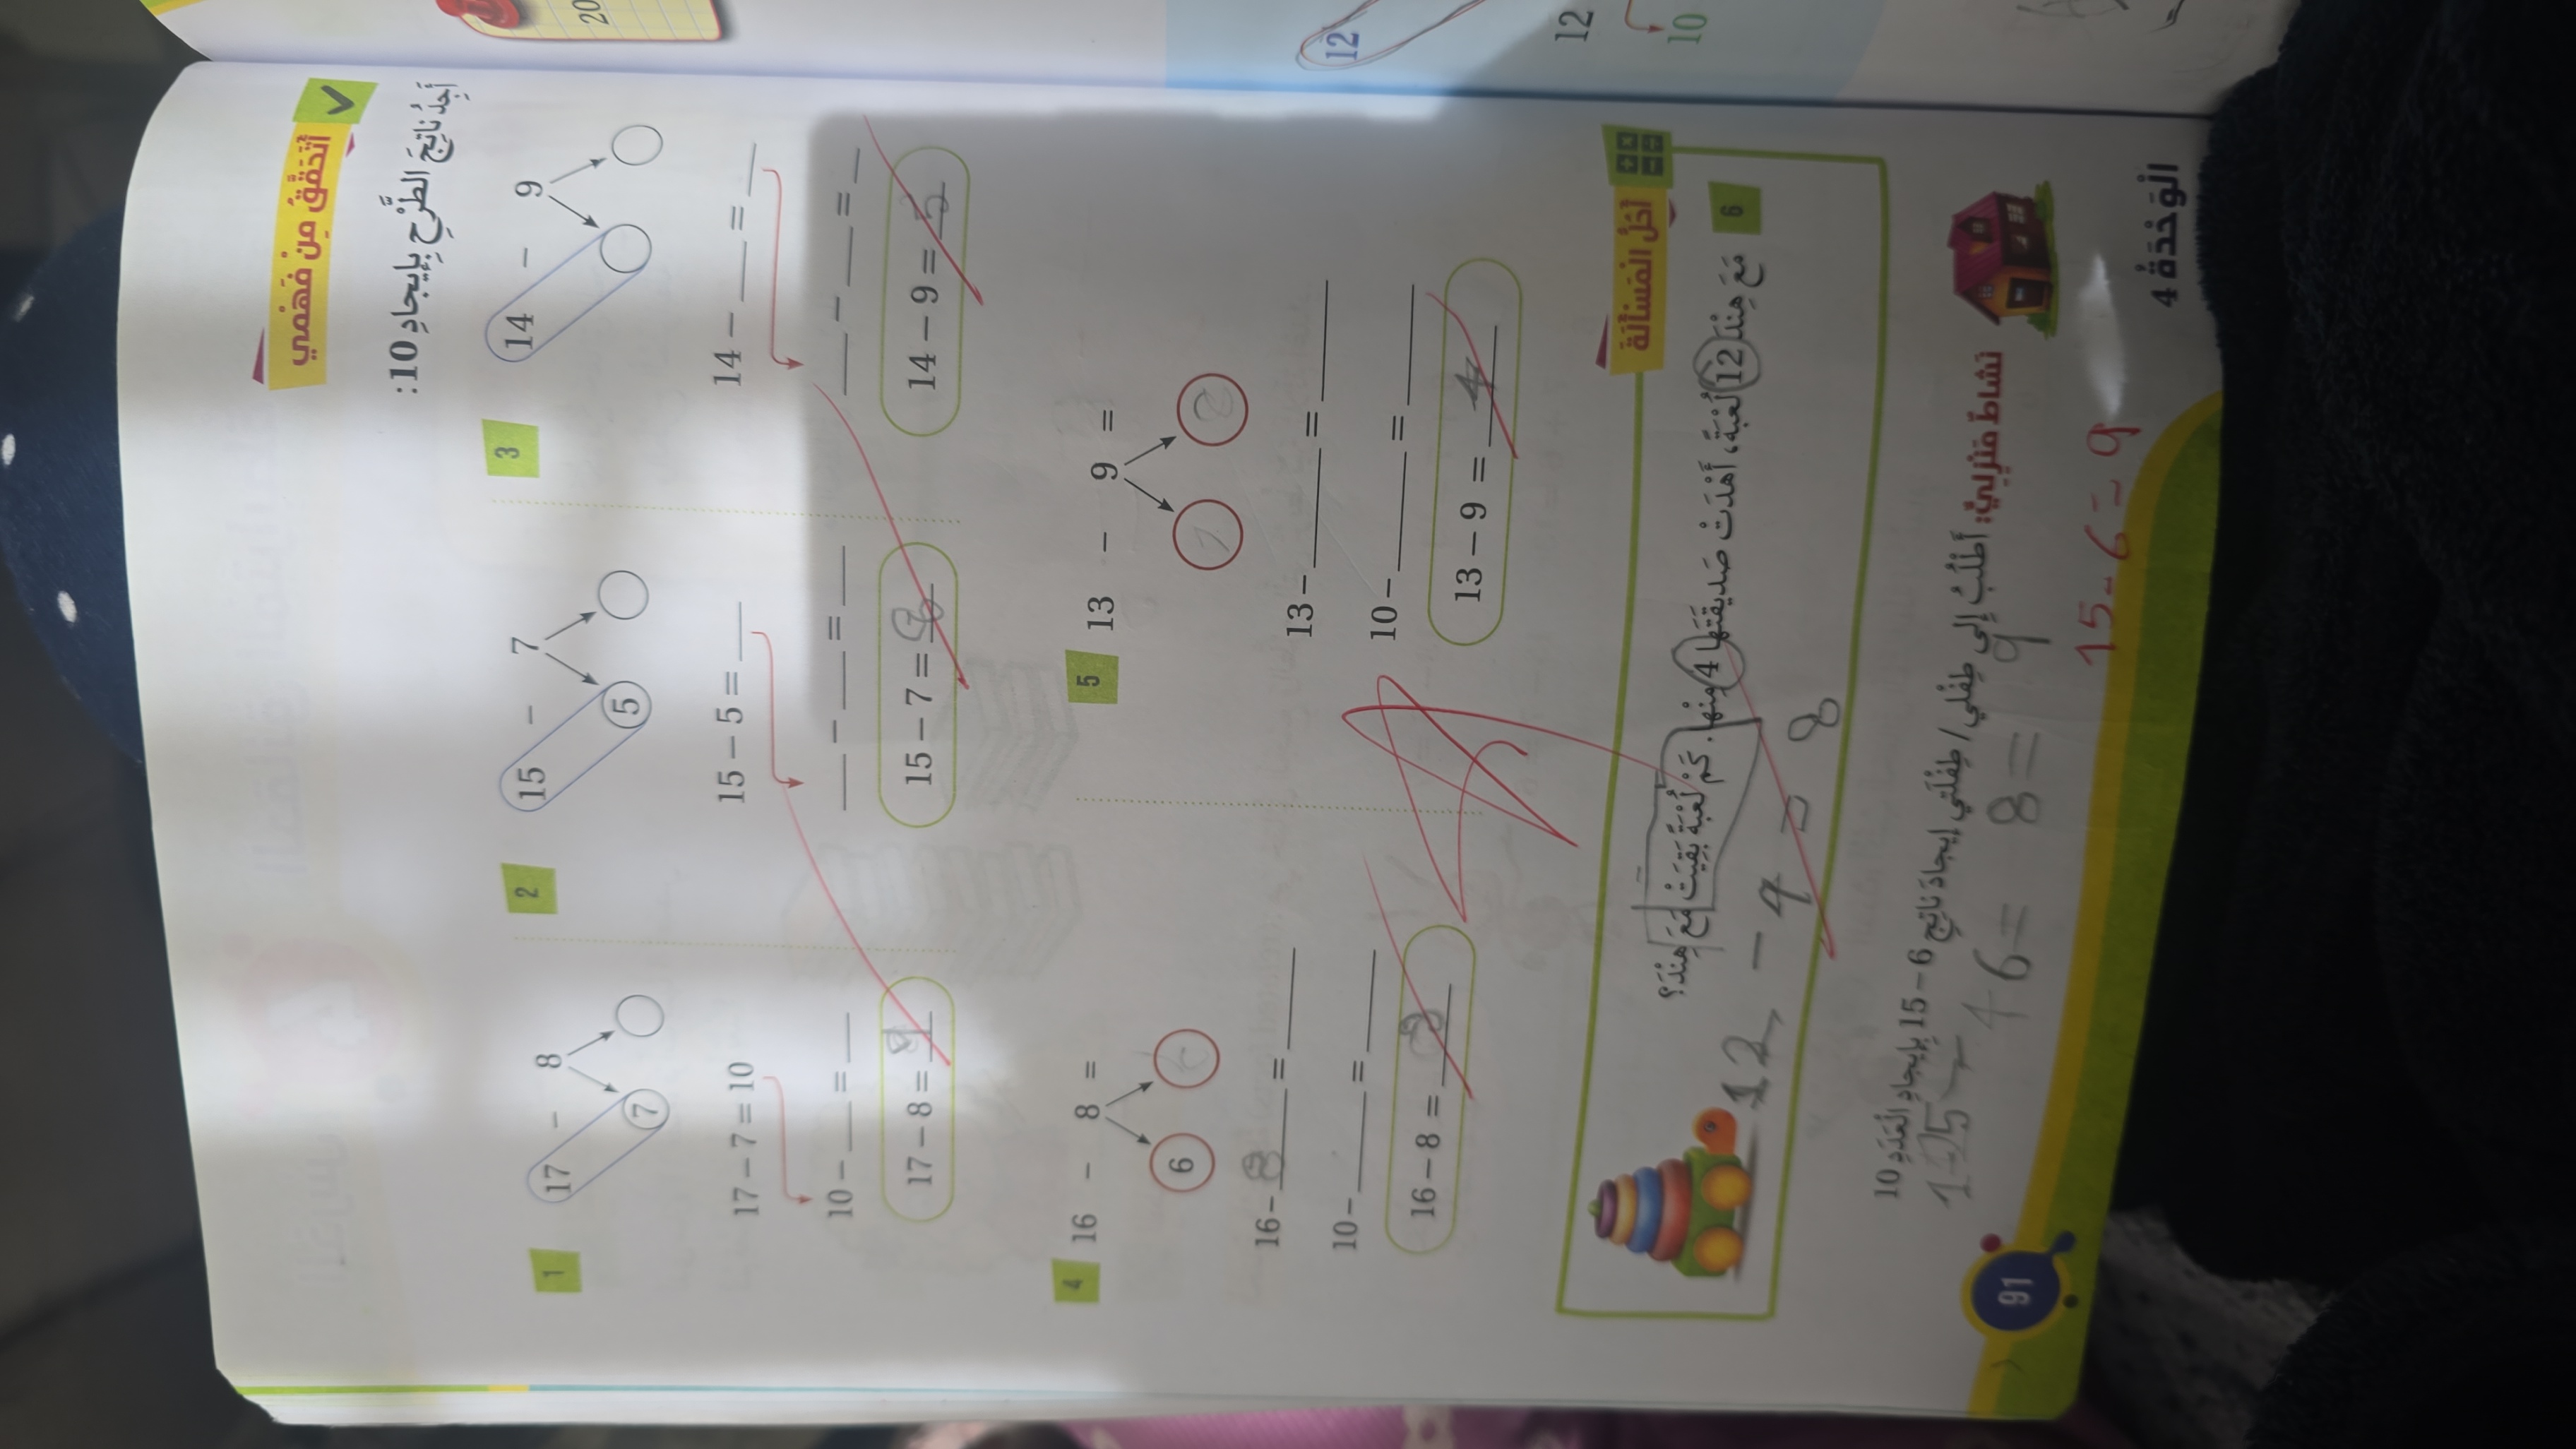 أَتَحَقَّقُ مِنْ فَهْمي
أَجِدُ ناتِجَ الطَّرْحِ بِإيجادِ 10:
1
17 - 8
7
17 – 7 = 10
10 – ___ = ___
17 – 8 = 9
2
15 - 7
5
15 – 5 = ___
___ – ___ = ___
15 – 7 = 8
3
14 - 9
14 – ___ = ___
___ – ___ = ___
14 – 9 = 5
4
16 - 8 =
6
16 – 8 = ___
10 – ___ = ___
16 – 8 =
5
13 - 9 =
13 – ___ = ___
10 – ___ = ___
13 – 9 = 4
أَحُلُّ الْمَسْأَلَةَ
6 مَعَ هِنْدَ 12 لُعْبَةً، أَهْدَتْ صَديقَتَها 4 مِنْها. كَمْ لُعْبَةً بَقِيَتْ مَعَ هِنْدَ؟
12 - 4 = 8
نَشاطٌ مَنْزِلِيٌّ: أَطْلُبُ إِلى طِفْلي/ طِفْلَتي إيجادَ ناتِجِ 6 – 15 بِإيجادِ الْعَدَدِ 10
6 = 8 = 9
15 - 6 = 9
الْوَحْدَةُ 4
91
20
12
12
10